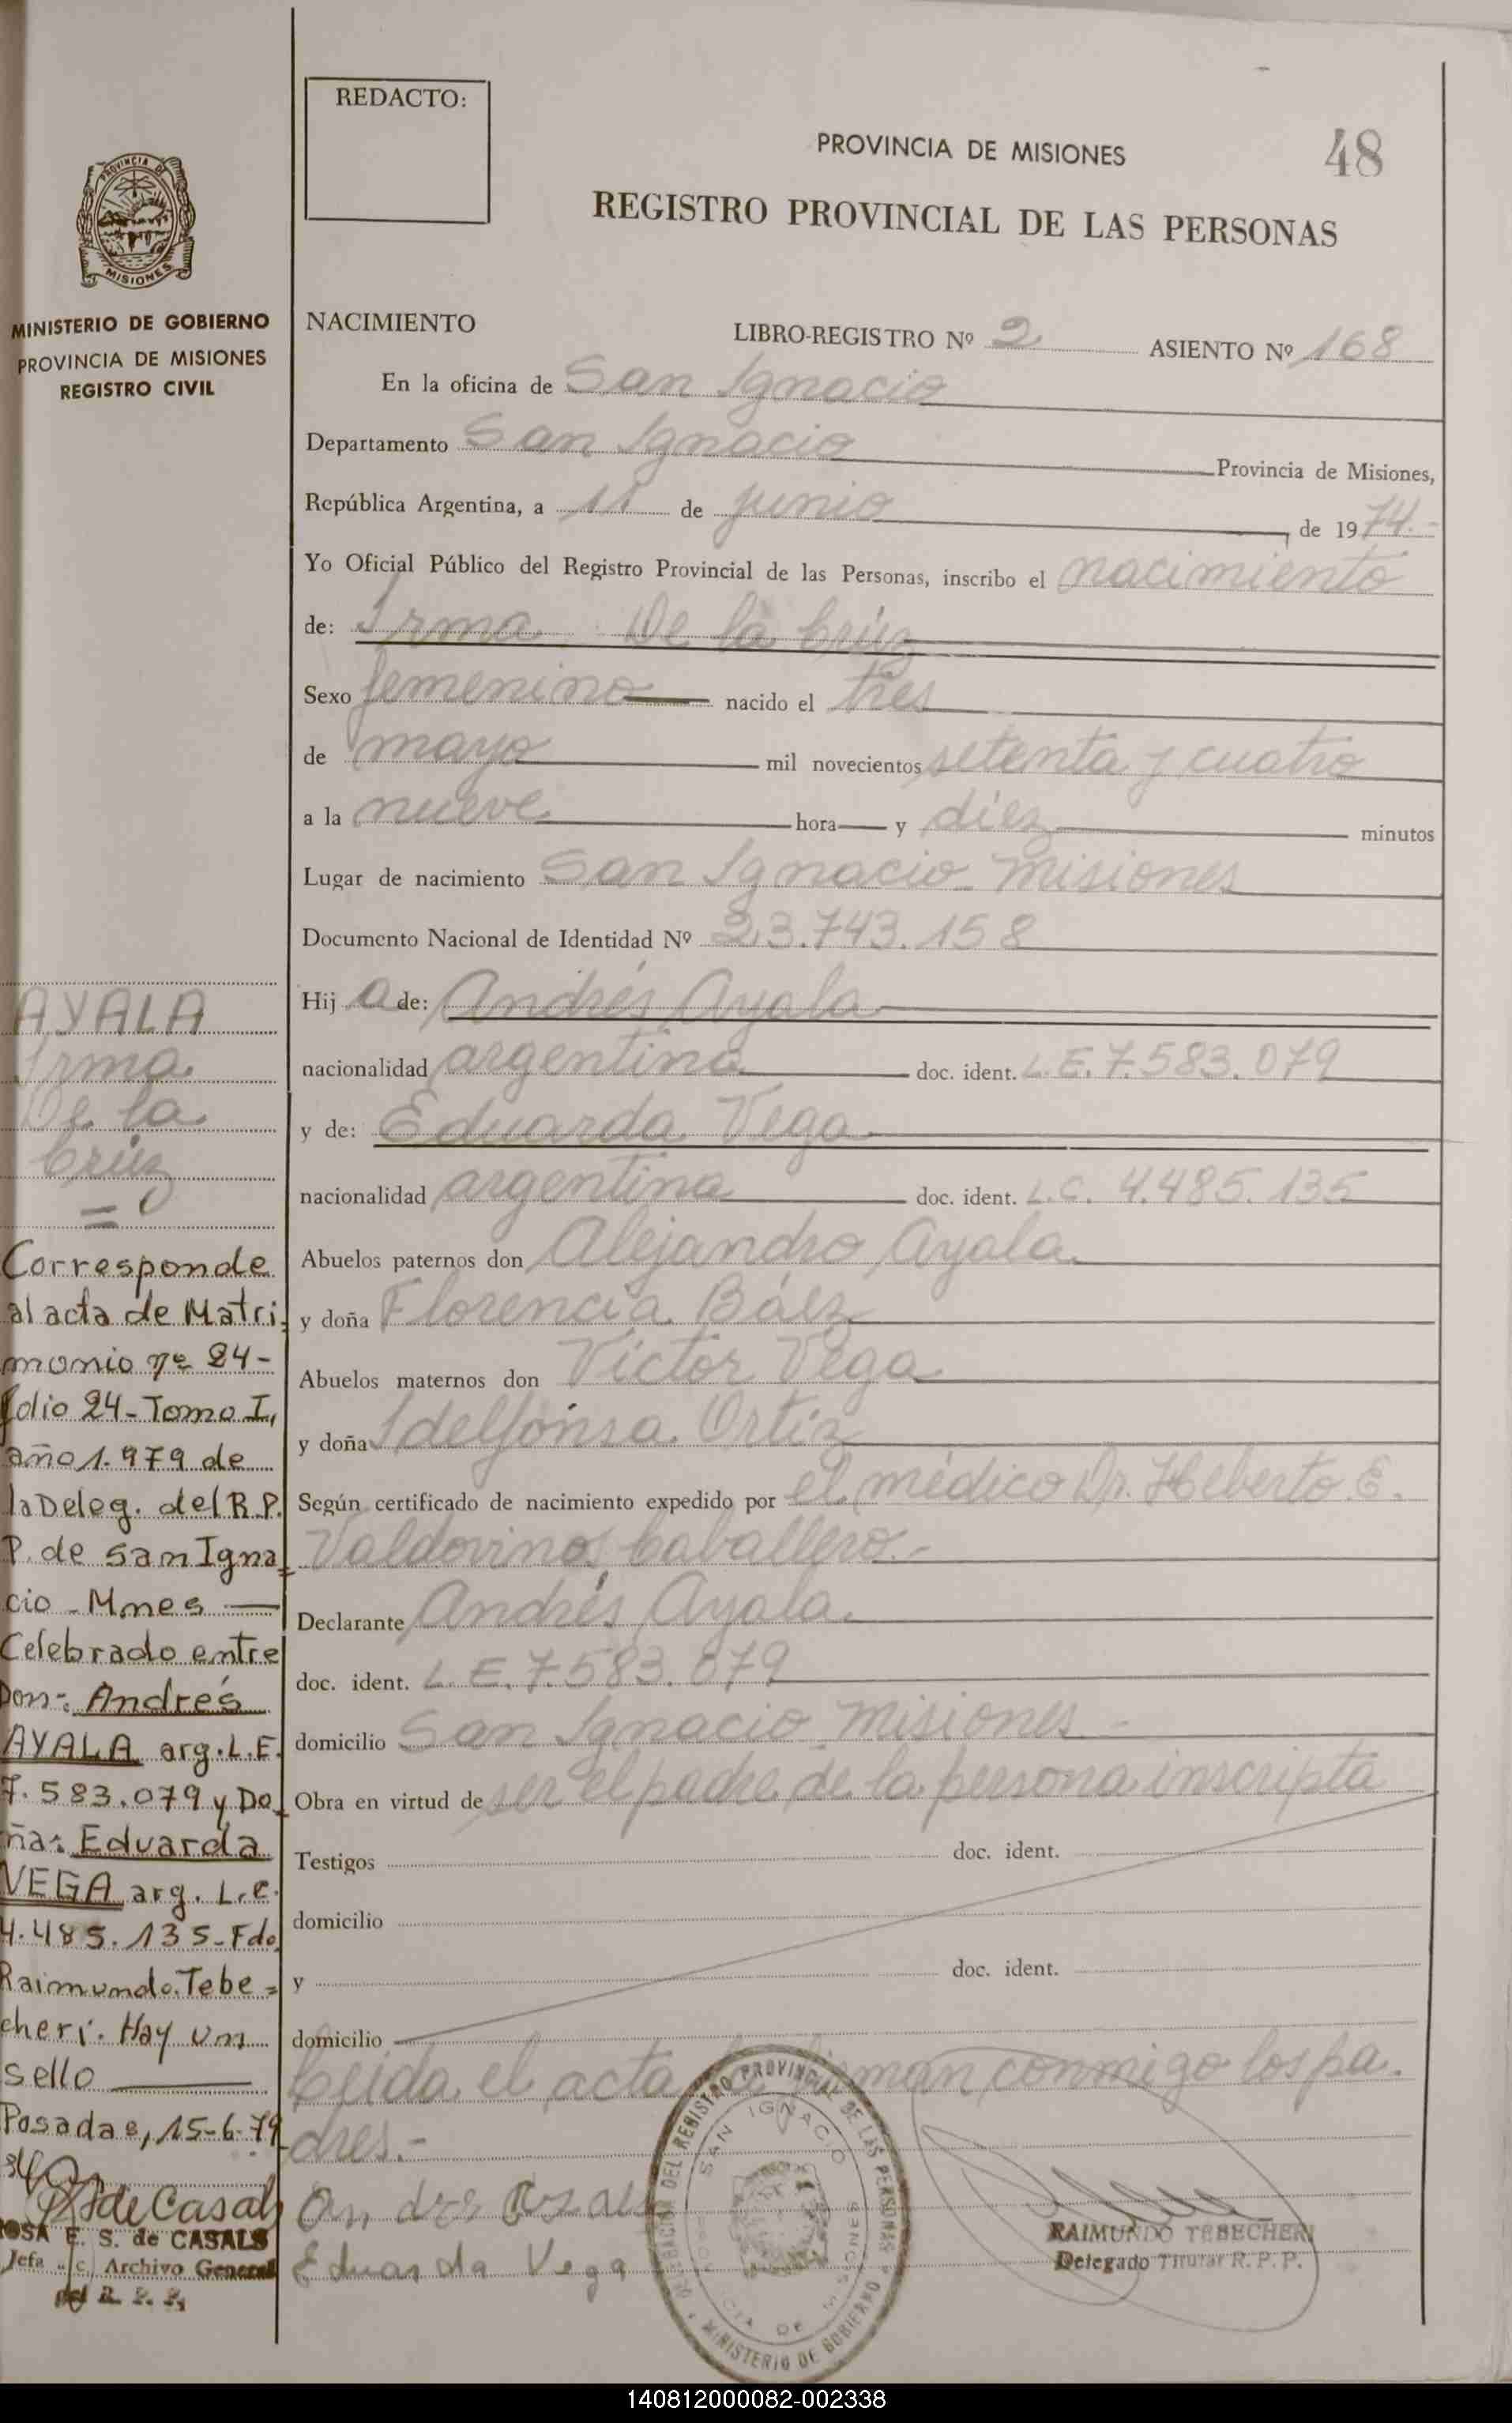 REDACTO:
PROVINCIA DE MISIONES
48
REGISTRO PROVINCIAL DE LAS PERSONAS
PROVINCIA DE
MISIONES
MINISTERIO DE GOBIERNO
PROVINCIA DE MISIONES
REGISTRO CIVIL
NACIMIENTO LIBRO-REGISTRO Nº 2 ASIENTO Nº 168
En la oficina de San Ignacio
Departamento San Ignacio Provincia de Misiones,
República Argentina, a 11 de junio de 1974.-
Yo Oficial Público del Registro Provincial de las Personas, inscribo el nacimiento
de: Irma De la Crúz
Sexo femenino nacido el tres
de mayo mil novecientos setenta y cuatro
a la nueve hora y diez minutos
Lugar de nacimiento San Ignacio - Misiones
Documento Nacional de Identidad Nº 23.743.158
Hij a de: Andrés Ayala
nacionalidad argentina doc. ident. L.E. 7.583.079
y de: Eduarda Vega
nacionalidad argentina doc. ident. L.C. 4.485.135
Abuelos paternos don Alejandro Ayala
y doña Florencia Báez
Abuelos maternos don Víctor Vega
y doña Idelfonsa Ortíz
Según certificado de nacimiento expedido por el médico Dr. Heberto E.
Valdovino Caballero.-
Declarante Andrés Ayala
doc. ident. L.E. 7.583.079
domicilio San Ignacio - Misiones -
Obra en virtud de ser el padre de la persona inscripta
Testigos doc. ident.
domicilio
y doc. ident.
domicilio
Leida el acta firman conmigo los pa-
dres.-
Eduarda Vega
RAIMUNDO TEBECHERI
Delegado Titular R. P. P.
DELEGACION DEL REGISTRO PROVINCIAL DE LAS PERSONAS
MINISTERIO DE GOBIERNO
SAN IGNACIO
AYALA
Irma
De la
Crúz
=
Corresponde
al acta de Matri-
monio nº 24-
folio 24-Tomo I,
año 1.979 de
la Deleg. del R.P.
P. de San Igna-
cio - Mnes —
Celebrado entre
Don: Andrés
AYALA arg. L.E.
7.583.079 y Do-
ña: Eduarda
VEGA arg. L.C.
4.485.135-Fdo.
Raimundo Tebe=
cheri. Hay un
sello
Posadas, 15-6-79
de Casals
ROSA E. S. de CASALS
Jefa Archivo General
del R. P. P.
140812000082-002338